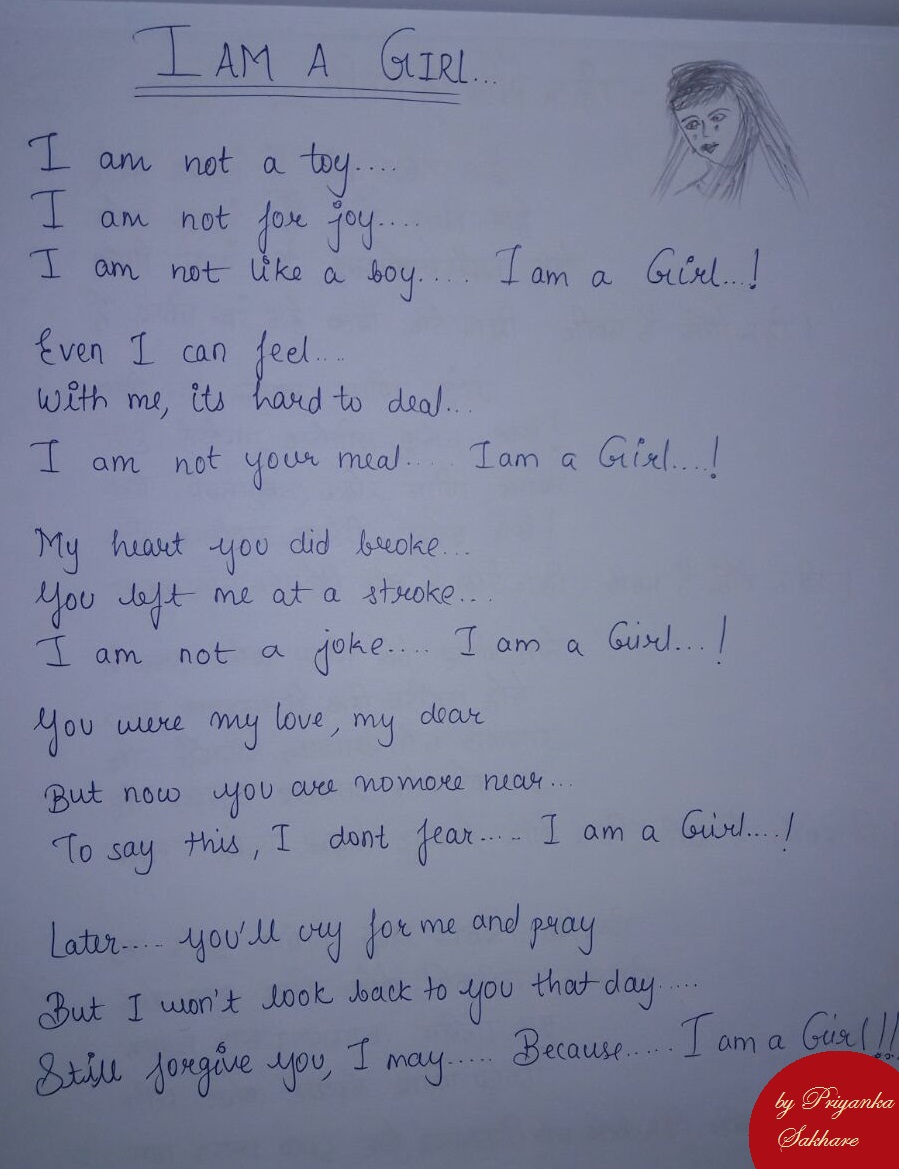 I AM A GIRL...
I am not a toy....
I am not for joy....
I am not like a boy.... I am a Girl...!
Even I can feel...
With me, its hard to deal...
I am not your meal.... I am a Girl....!
My heart you did broke...
You left me at a stroke...
I am not a joke.... I am a Girl...!
You were my love, my dear
But now you are nomore near...
To say this, I dont fear..... I am a Girl....!
Later.... you'll cry for me and pray
But I won't look back to you that day.....
Still forgive you, I may..... Because..... I am a Girl!!
by Priyanka
Sakhare